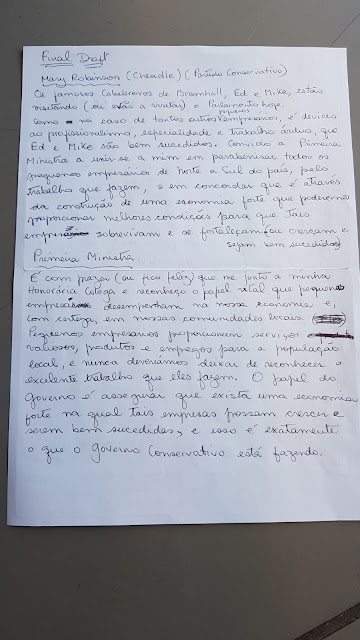 Final Draft
Mary Robinson (Cheadle) (Partido Conservativo)
Os famosos Cabeleireiros de Bramhall, Ed e Mike, estão
visitando (ou estão a visitar) o Parlamento hoje.
Como no caso de tantos outros pequenos empresários, é devido
ao profissionalismo, especialidade e trabalho árduo, que
Ed e Mike são bem sucedidos. Convido a Primeira
Ministra a unir-se a mim em parabenizar todos os
pequenos empresários de Norte a Sul do país, pelo
trabalho que fazem, e em concordar que é através
da construção de uma economia forte que poderemos
proporcionar melhores condições para que tais
empresas sobrevivam e se fortaleçam (ou cresçam e
sejam bem sucedidas)
Primeira Ministra
É com prazer (ou fico feliz) que me junto a minha
Honorária Colega e reconheço o papel vital que pequenas
empresas desempenham na nossa economia e,
com certeza, em nossas comunidades locais.
Pequenos empresários proporcionam serviços
valiosos, produtos e empregos para a população
local, e nunca deveríamos deixar de reconhecer o
excelente trabalho que eles fazem. O papel do
Governo é assegurar que exista uma economia
forte na qual tais empresas possam crescer e
serem bem sucedidas, e isso é exatamente
o que o Governo Conservativo está fazendo.